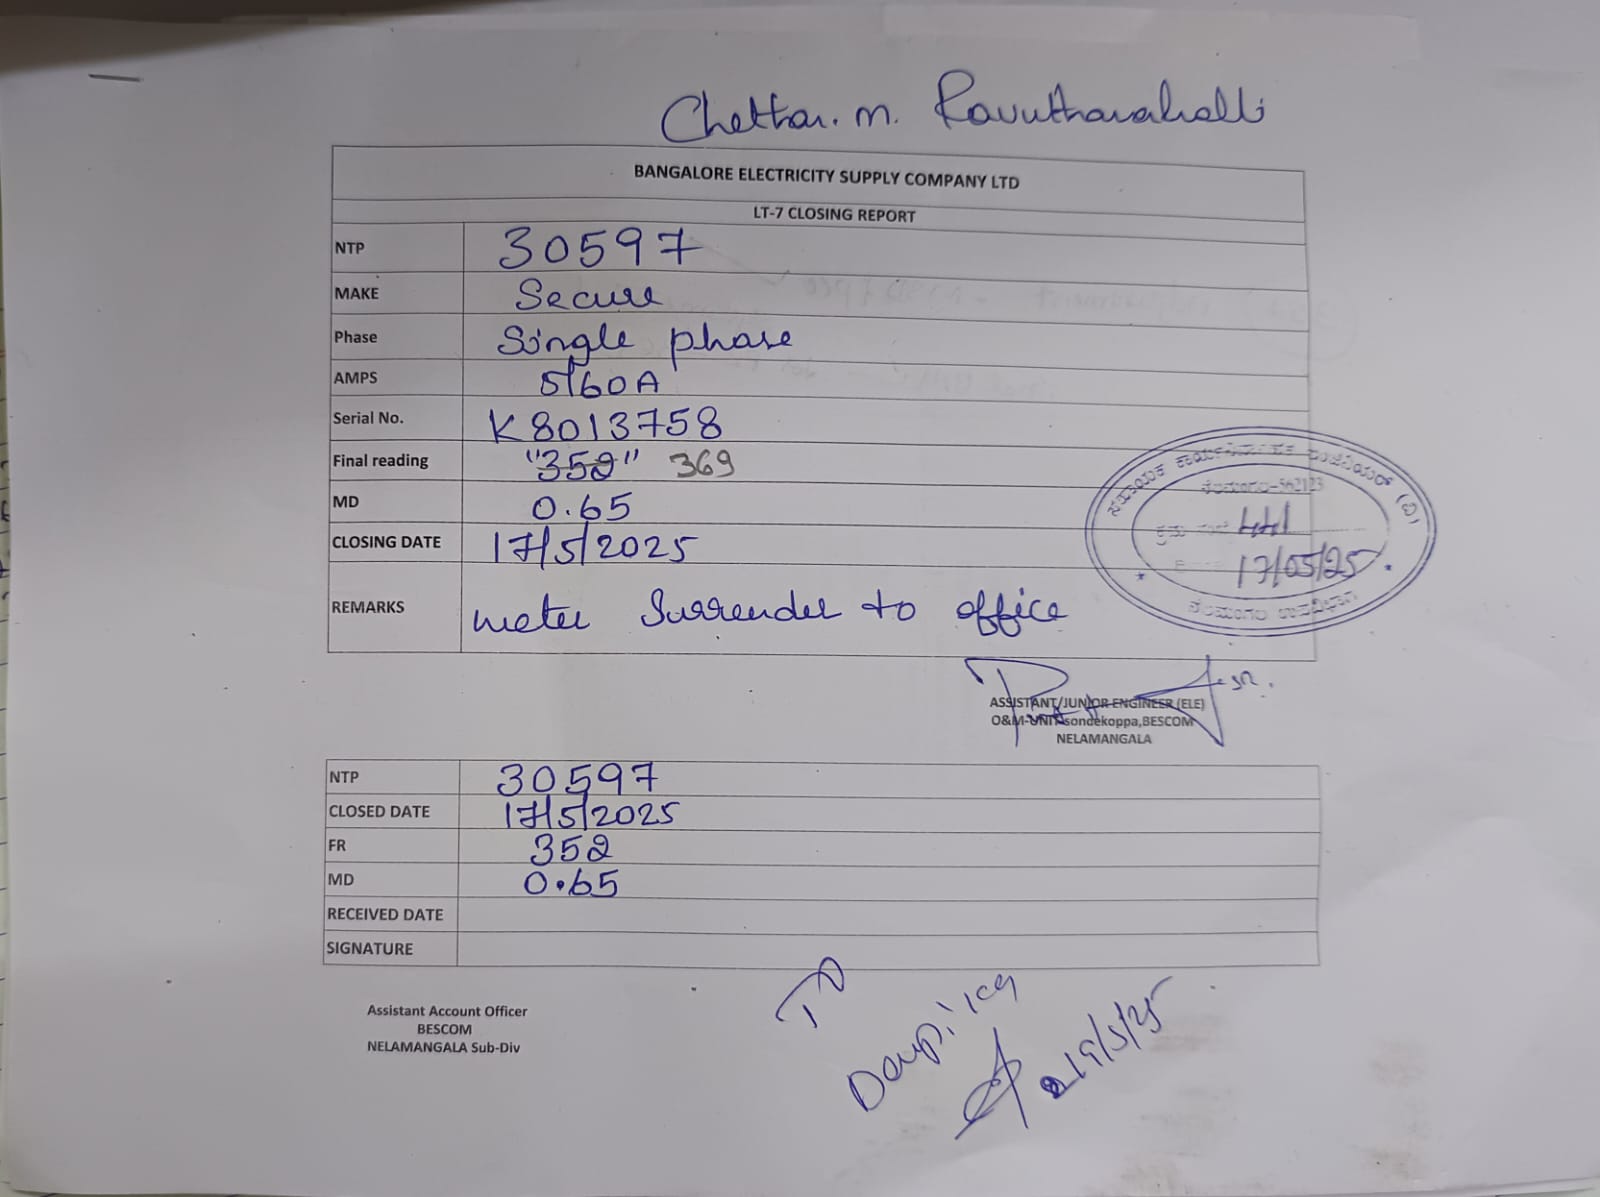 Chethan. m. Ravutharahalli
BANGALORE ELECTRICITY SUPPLY COMPANY LTD
LT-7 CLOSING REPORT
NTP 30597
MAKE Secure
Phase Single phase
AMPS 5/60A
Serial No. K8013758
Final reading "352" 369
MD 0.65
CLOSING DATE 17/5/2025
REMARKS meter Surrender to office
ನೆಲಮಂಗಲ-562123
441
17/05/25
ನೆಲಮಂಗಲ ಉಪವಿಭಾಗ
ASSISTANT/JUNIOR ENGINEER (ELE)
O&M-UNIT sondekoppa,BESCOM
NELAMANGALA
NTP 30597
CLOSED DATE 17/5/2025
FR 352
MD 0.65
RECEIVED DATE
SIGNATURE
Assistant Account Officer
BESCOM
NELAMANGALA Sub-Div